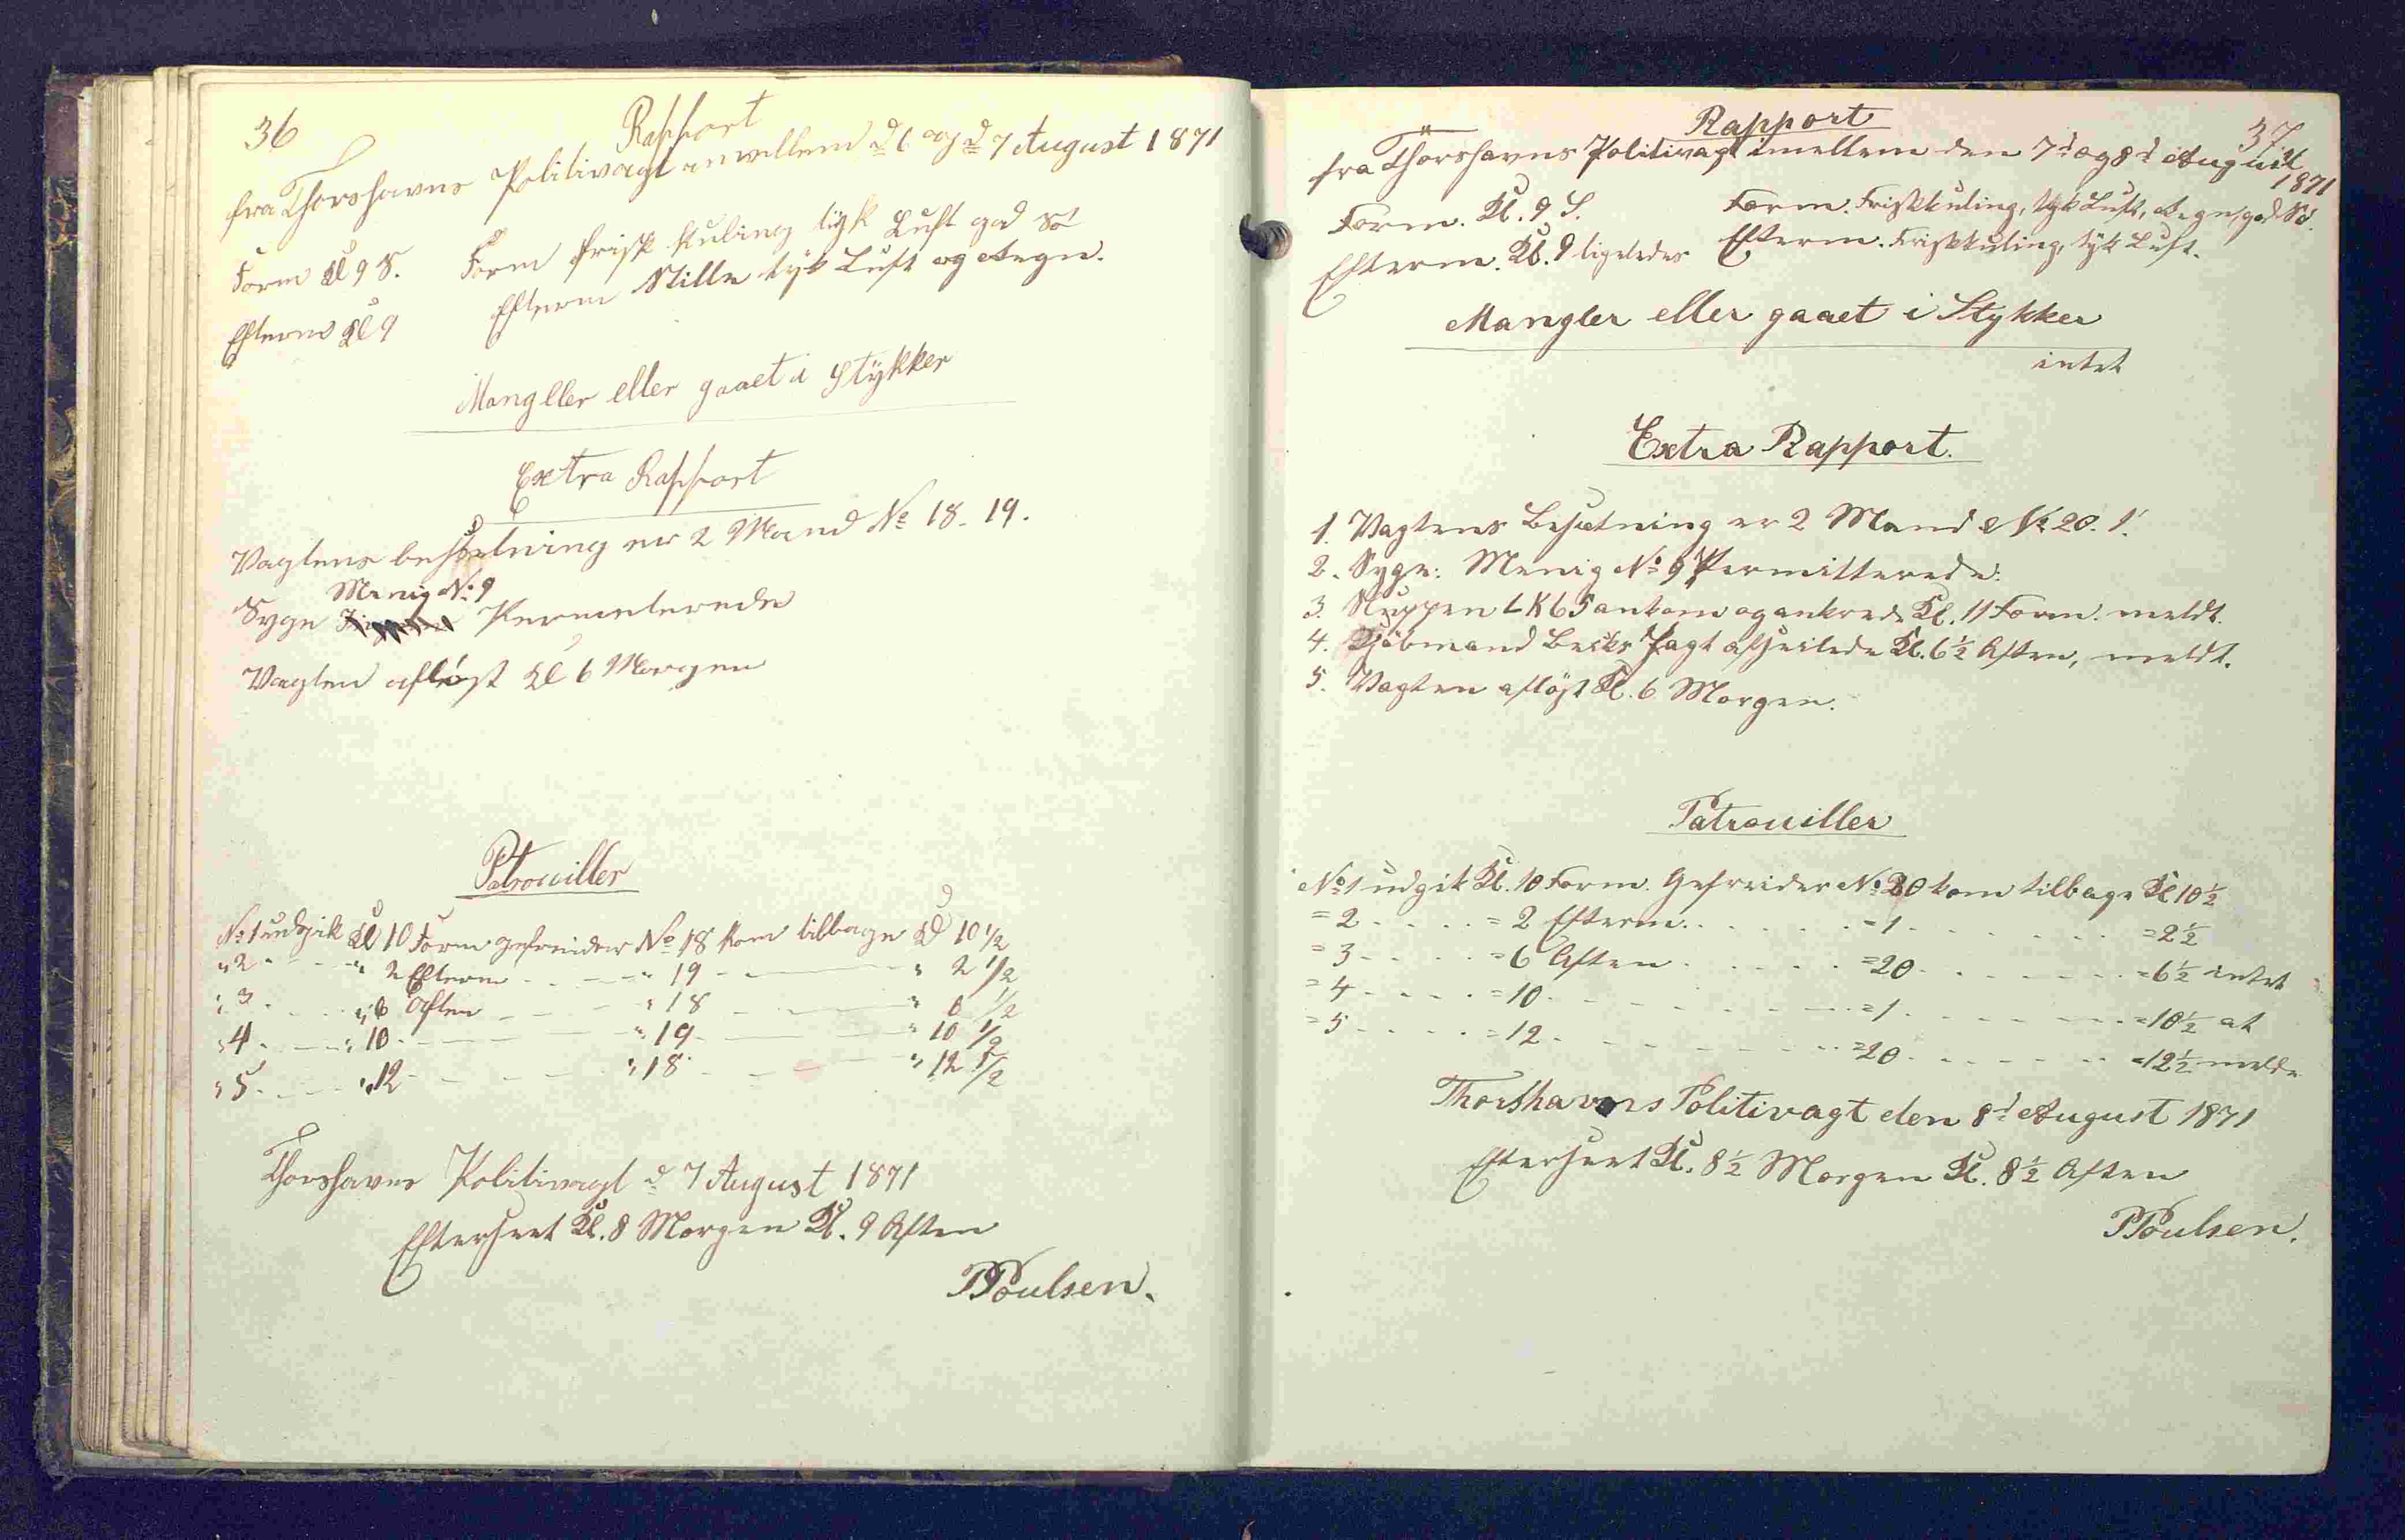 36
Rapport
fra Thorshavns Politivagt imellem d 6 og d 7 August 1871
Form Kl 9 S. Form frisk Kuling tyk Luft god Sö
Efterm Kl 9 Efterm Stille tyk Luft og Regn.
Mangller eller gaaet i Stykker
Extra Rapport
Vagtens besætning er 2 Mand No 18. 19.
Menig No 9
Syge Permeterede
Vagten aflöst Kl 6 Morgen
Patrouiller
No 1 udgik Kl 10 Form gefreider No 18 kom tilbage Kl 10 1/2
" 2 - - " 2 Efterm - - " 19 - - " 2 1/2
" 3 - - " 6 Aften - - " 18 - - " 6 1/2
" 4 - - " 10 - - " 19 - - " 10 1/2
" 5 - - " 12 - - " 18 - - " 12 1/2
Thorshavns Politivagt d 7 August 1871
Efterseet Kl. 8 Morgen Kl. 9 Aften
PPoulsen.
37
Rapport
fra Thorshavns Politivagt imellem den 7d og 8d August
1871
Form. Kl. 9 S. Form. Friskkuling, tyk Luft, Regn, god Sö.
Efterm. Kl. 9 ligeledes Efterm. Friskkuling, tyk Luft.
Mangler eller gaaet i Stykker
intet
Extra Rapport.
1. Vagtens Besætning er 2 Mand No 20. 1.
2. Syge: Menig No 9 Permitterede:
3. Sluppen LK65 ankom og ankrede Kl. 11 Form. meldt.
4. Kjöbmand Becks Jagt afseilede Kl. 6 1/2 Aften, meldt.
5. Vagten aflöst Kl. 6 Morgen.
Patrouiller
No 1 udgik Kl. 10 Form. Gefreider No 20 kom tilbage Kl 10 1/2
= 2 - - - = 2 Efterm. - - - = 1 - - - = 2 1/2
= 3 - - - = 6 Aften - - - = 20 - - - = 6 1/2 intet
= 4 - - - = 10 - - - = 1 - - - = 10 1/2 at
= 5 - - - = 12 - - - = 20 - - - = 12 1/2 melde
Thorshavns Politivagt den 8d August 1871
Efterseet Kl. 8 1/2 Morgen Kl. 8 1/2 Aften
PPoulsen.